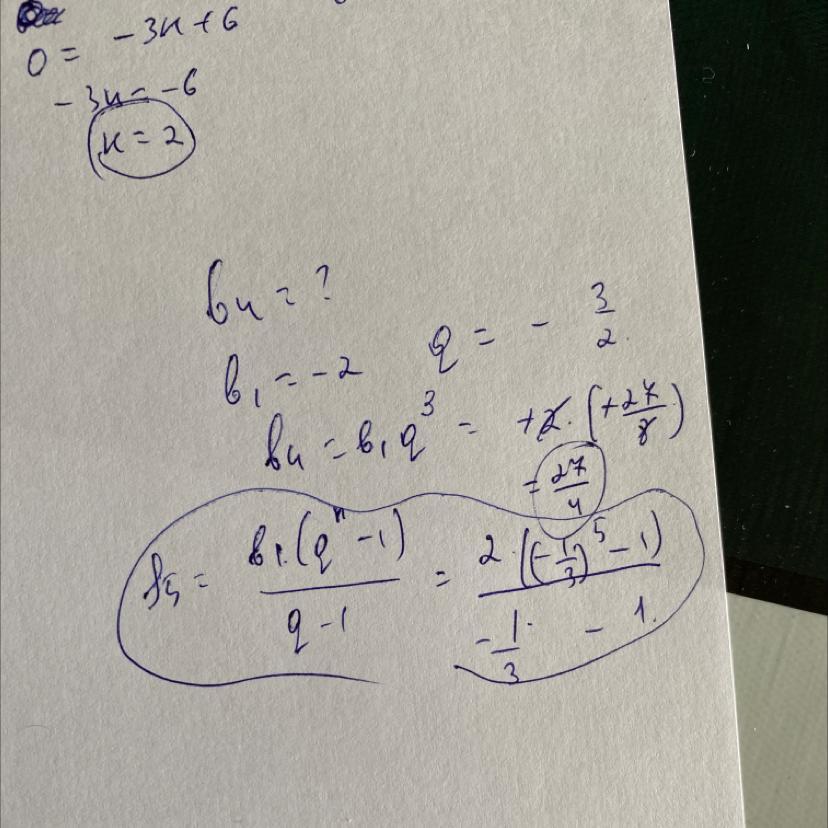 0 = -3x + 6
-3x = -6
x = 2
b₄ = ?
b₁ = -2 q = -3/2
b₄ = b₁q³ = +2·(+27/8)
= 27/4
S₅ = b₁·(qⁿ-1)/(q-1) = 2·((-1/3)⁵-1)/(-1/3-1)